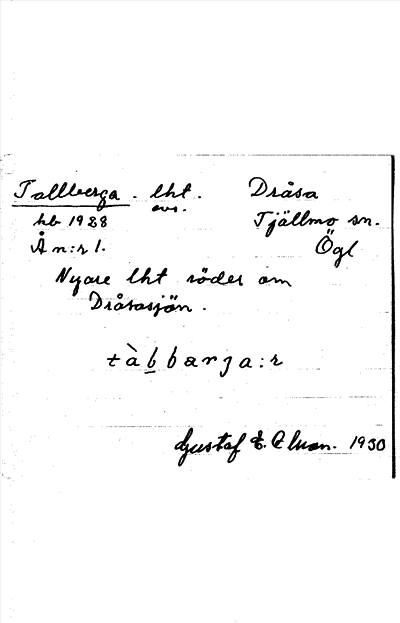 Tallberga. lht. Dråsa
avs.
hb 1928 Tjällmo sn.
Å n:r 1. Ögl
Nyare lht söder om
Dråsasjön.
tàbbarja:r
Gustaf E. Alman. 1930